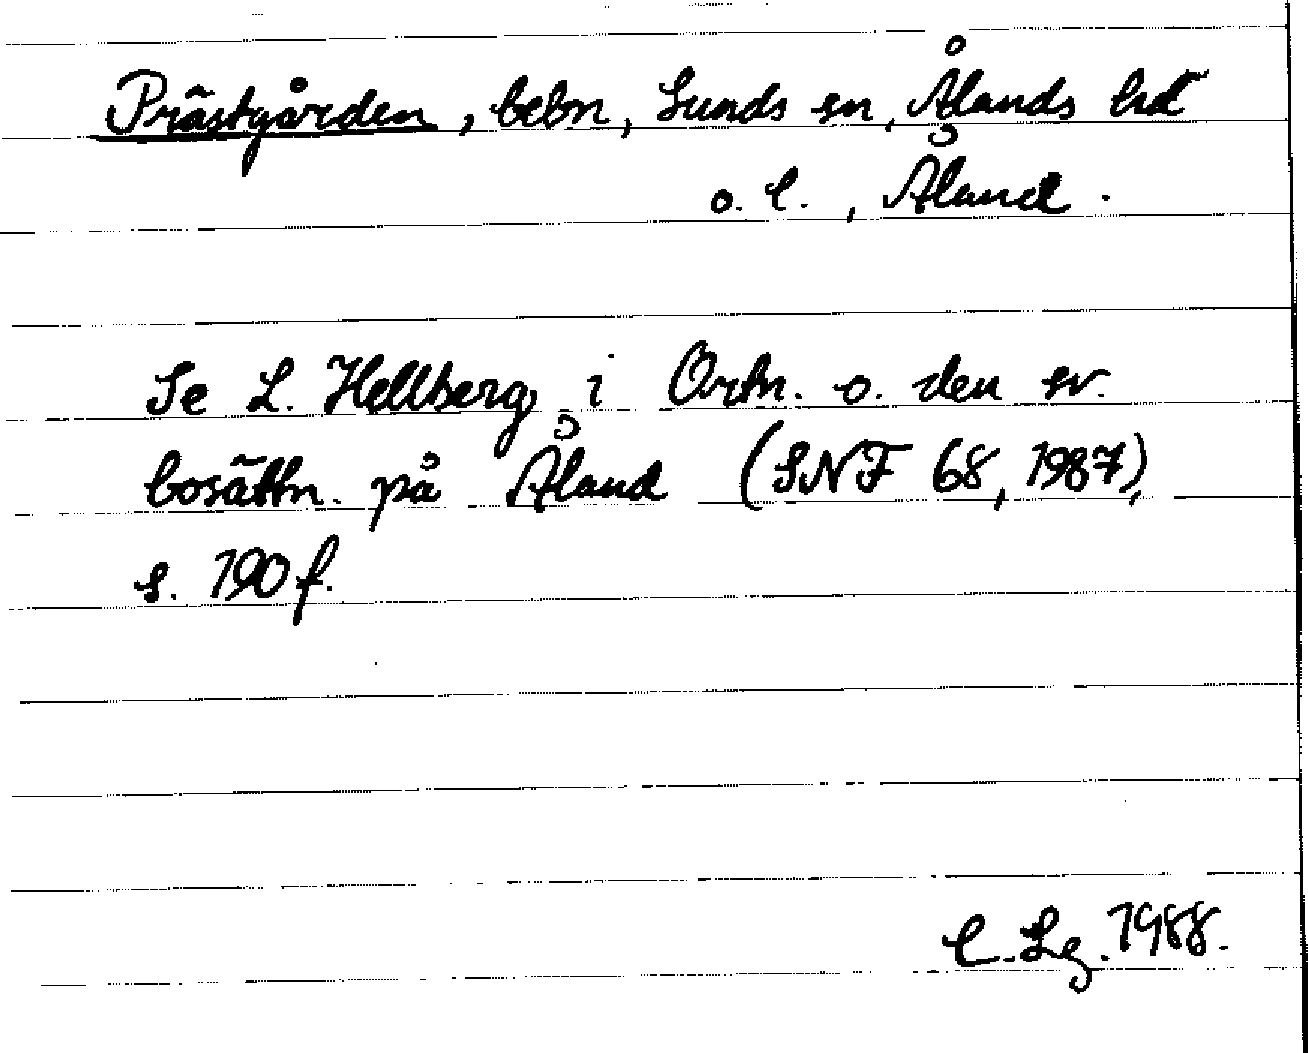 Prästgården, bebn, Sunds sn, Ålands hd
o. l., Åland.
Se L. Hellberg i Ortn. o. den sv.
bosättn. på Åland (SNF 68, 1987),
s. 190 f.
C. Lg. 1988.